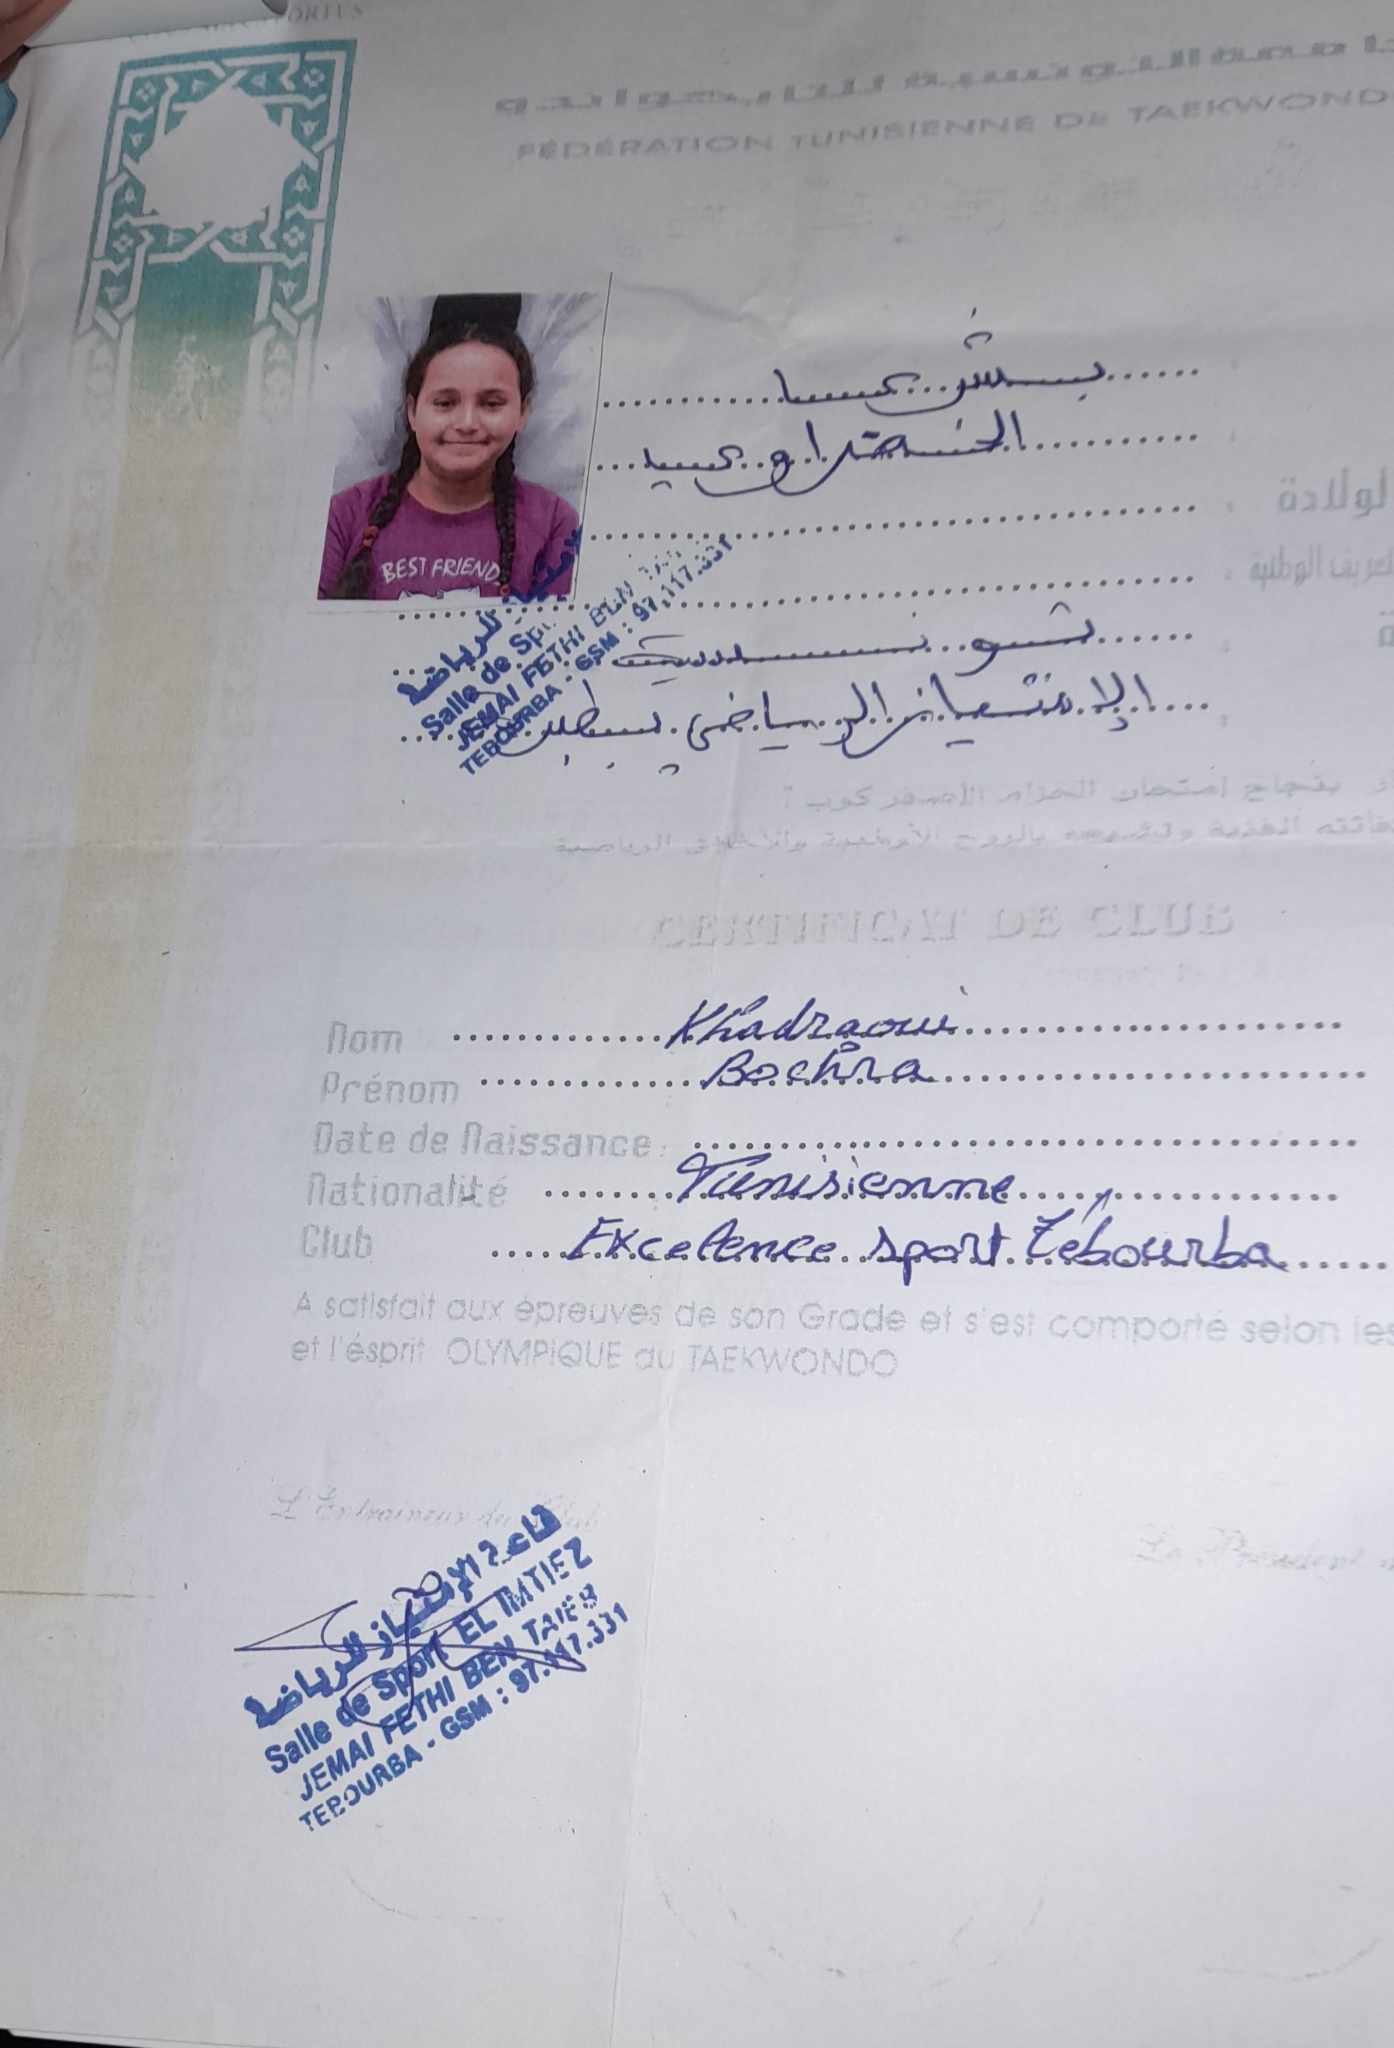 FÉDÉRATION TUNISIENNE DE TAEKWONDO
بشرى
الخضراوي
لولادة
تونسية
الإمتياز الرياضي بطبربة
BEST FRIEND
للرياضة
Salle de Sp
JEMAI FETHI BEN TAI
TEBOURBA - GSM : 97.117.331
بنجاح إمتحان الحزام الأصفر كوب
بالروح الأولمبية والأخلاق الرياضية
CERTIFICAT DE CLUB
Nom Khadraoui
Prénom Bochra
Date de Naissance :
Nationalité Tunisienne
Club Excelence sport Tébourba
A satisfait aux épreuves de son Grade et s'est comporté selon les
et l'ésprit OLYMPIQUE du TAEKWONDO
L'Entraineur du Club
Le Président
قاعة الإمتياز للرياضة
Salle de Sport EL IMTIEZ
JEMAI FETHI BEN TAIEB
TEBOURBA - GSM : 97.117.331